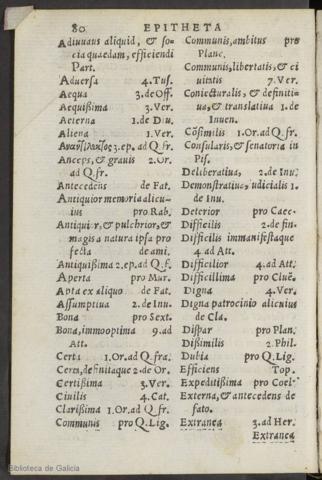 80 EPITHETA
Adiuuans aliquid, & so-
cia quædam, efficiendi
Part.
Aduersa 4.Tus.
Aequa 3.de Off.
Aequißima 3.Ver.
Aeterna 1.de Diu.
Aliena 1.Ver.
3.ep.ad Q.fr.
Anceps, & grauis 2.Or.
ad Q.fr.
Antecedens de Fat.
Antiquior memoria alicu-
ius pro Rab.
Antiquior, & pulchrior, &
magis a natura ipsa pro
fecta de ami.
Antiquißima 2.ep.ad Q.f.
Aperta pro Mur.
Apta ex aliquo de Fat.
Assumptiua 2.de Inu.
Bona pro Sext.
Bona, immo optima 9.ad
Att.
Certa 1.Or.ad Q.fra.
Certa, definitaque 2.de Or.
Certißima 3.Ver.
Ciuilis 4.Cat.
Clarißima 1.Or.ad Q.fr.
Communis pro Q.Lig.
Communis, ambitus pro
Planc.
Communis, libertatis, & ci
uitatis 7.Ver.
Coniecturalis, & definiti-
ua, & translatiua 1.de
Inuen.
Cõsimilis 1.Or.ad Q.fr.
Consularis, & senatoria in
Pis.
Deliberatiua, 2.de Inu.
Demonstratiua, iudicialis 1.
de Inu.
Deterior pro Caec.
Difficilis 2.de fin.
Difficilis immanifestaque
4.ad Att.
Difficilior 4.ad Att.
Difficillima pro Cluẽ.
Digna 4.Ver.
Digna patrocinio alicuius
de Cla.
Dispar pro Plan.
Dißimilis 2.Phil.
Dubia pro Q.Lig.
Efficiens Top.
Expeditißima pro Coel.
Externa, & antecedens de
fato.
Extranea 3.ad Her.
Extranea
Biblioteca de Galicia